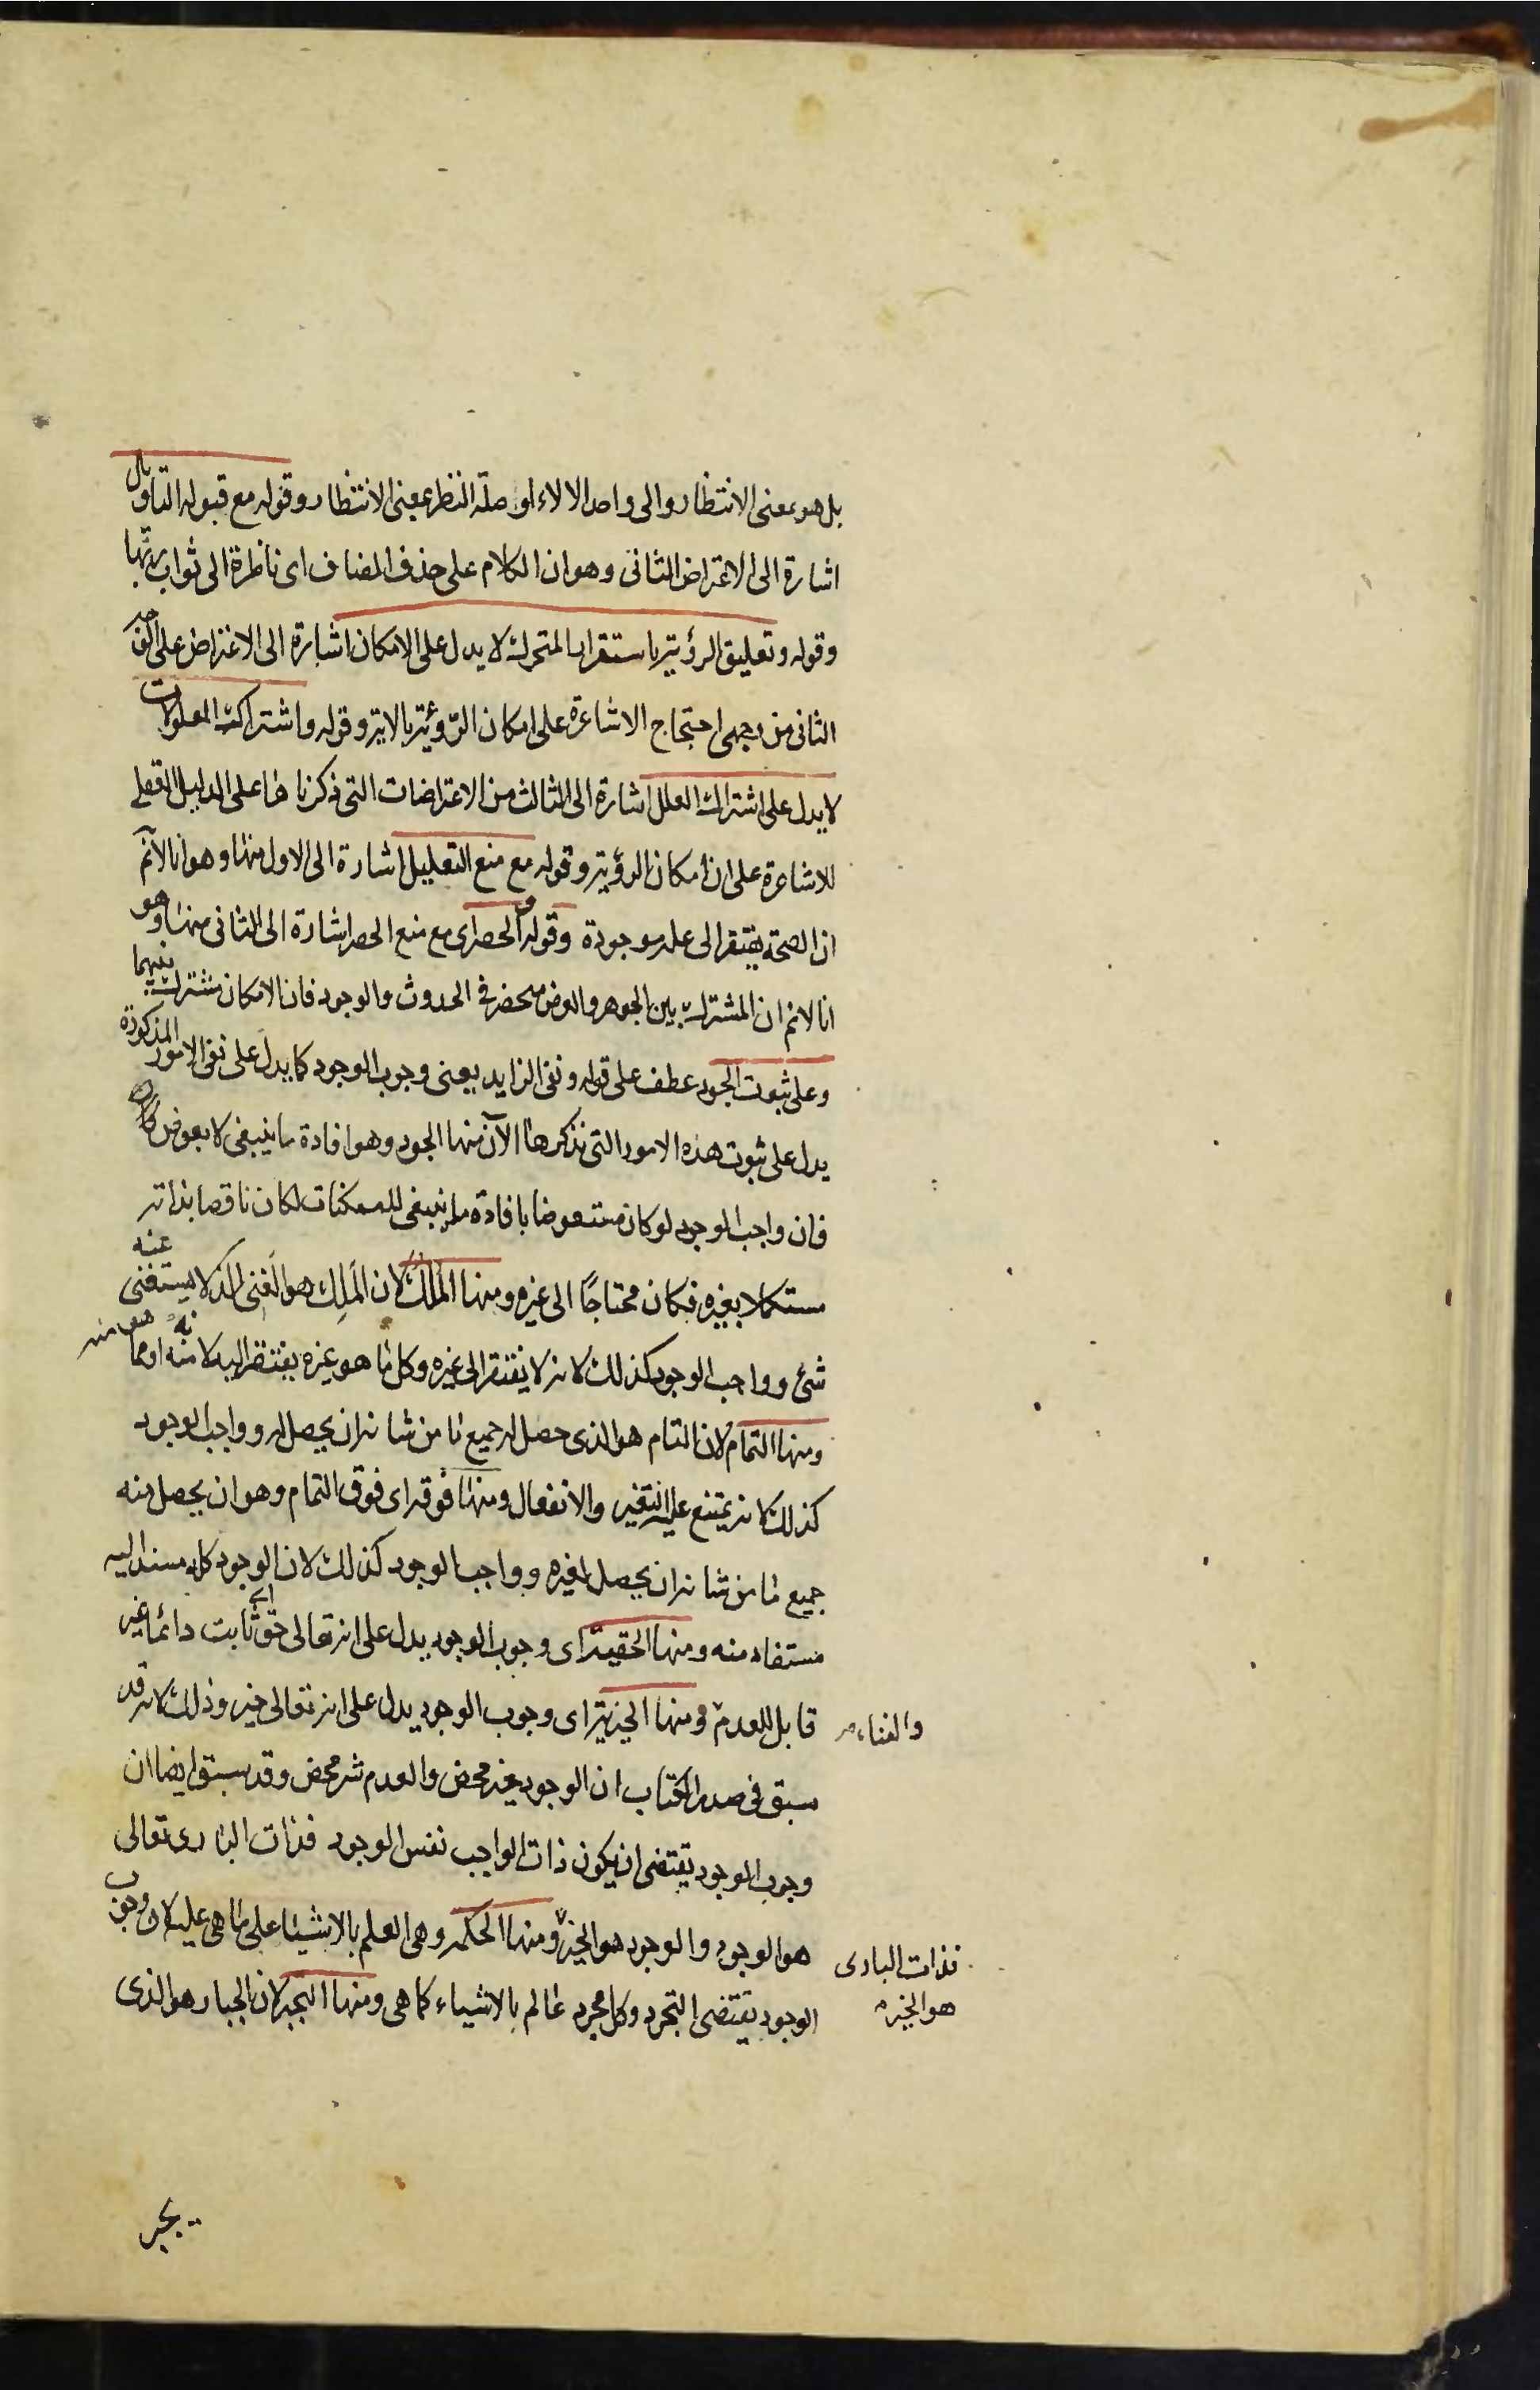 بل هو بمعنى الانتظار والى واحد الالاء او صلة النظر بمعنى الانتظار وقوله مع قبوله التاويل
اشارة الى الاعتراض الثانى وهو ان الكلام على حذف المضاف اى ناظرة الى ثواب ربّها
وقوله وتعليق الرؤية باستقرار المتحرك لا يدل على الامكان اشارة الى الاعتراض على الوجه
الثانى من وجهى احتجاج الاشاعرة على امكان الرؤية بالاية وقوله واشتراك المعلولات
لا يدل على اشتراك العلل اشارة الى الثالث من الاعتراضات التى ذكرناها على الدليل العقلى
للاشاعرة على ان امكان الرؤية وقوله مع منع التعليل اشارة الى الاول منها وهو انا لا نم
ان الصحة يفتقر الى علة موجودة وقوله والحصر اى مع منع الحصر اشارة الى الثانى منها وهو
انا لا نم ان المشترك بين الجوهر والعرض منحصر فى الحدوث والوجود فان الامكان مشترك بينهما
وعلى ثبوت الجود عطف على قوله ونفى الزايد يعنى وجوب الوجود كما يدل على نفى الامور المذكورة
يدل على ثبوت هذه الامور التى نذكرها الآن منها الجود وهو افادة ما ينبغى لا بعوض
فان واجب الوجود لو كان مستعوضا بافادة ما ينبغى للممكنات لكان ناقصا بذاته
مستكملا بغيره فكان محتاجًا الى غيره ومنها الملك لان المَلِك هو الغنى الذى لا يستغنى عنه
شئ وواجب الوجود كذلك لانه لا يفتقر الى غيره وكل ما هو غيره يفتقر اليه لانه منه او مما هو منه
ومنها التمام لان التام هو الذى حصل له جميع ما من شانه ان يحصل له وواجب الوجود
كذلك لانه يمتنع عليه التغير والانفعال ومنها فوقه اى فوق التمام وهو ان يحصل منه
جميع ما من شانه ان يحصل لغيره وواجب الوجود كذلك لان الوجود كله مسند اليه
مستفاد منه ومنها الحقية اى وجوب الوجود يدل على انه تعالى حق اى ثابت دائما غير
قابل للعدم ومنها الخيرية اى وجوب الوجود يدل على انه تعالى خير وذلك لانه قد
والفناء
سبق فى صدر الكتاب ان الوجود خير محض والعدم شر محض وقد سبق ايضا ان
وجوب الوجود يقتضى ان يكون ذات الواجب نفس الوجود فذات البارى تعالى
هو الوجود والوجود هو الخير ومنها الحكمة وهى العلم بالاشيا على ما هى عليه لان وجوب
فذات البارى
هو الخير
الوجود يقتضى التجرد وكل مجرد عالم بالاشياء كما هى ومنها التجبر لان الجبار هو الذى
يجبر